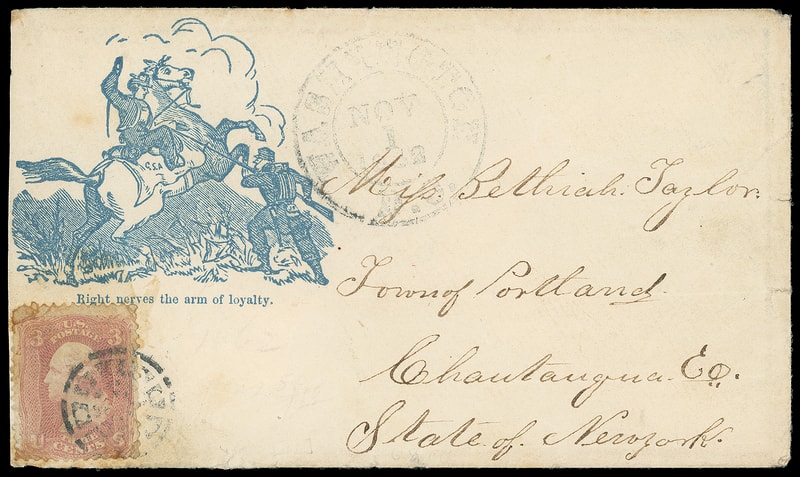 WASHINGTON
NOV
1
1862
D.C.
Right nerves the arm of loyalty.
Miss Bethiah Taylor.
Town of Portland
Chautauqua Co.
State of Newyork.
3 U.S. 3
POSTAGE
CENTS